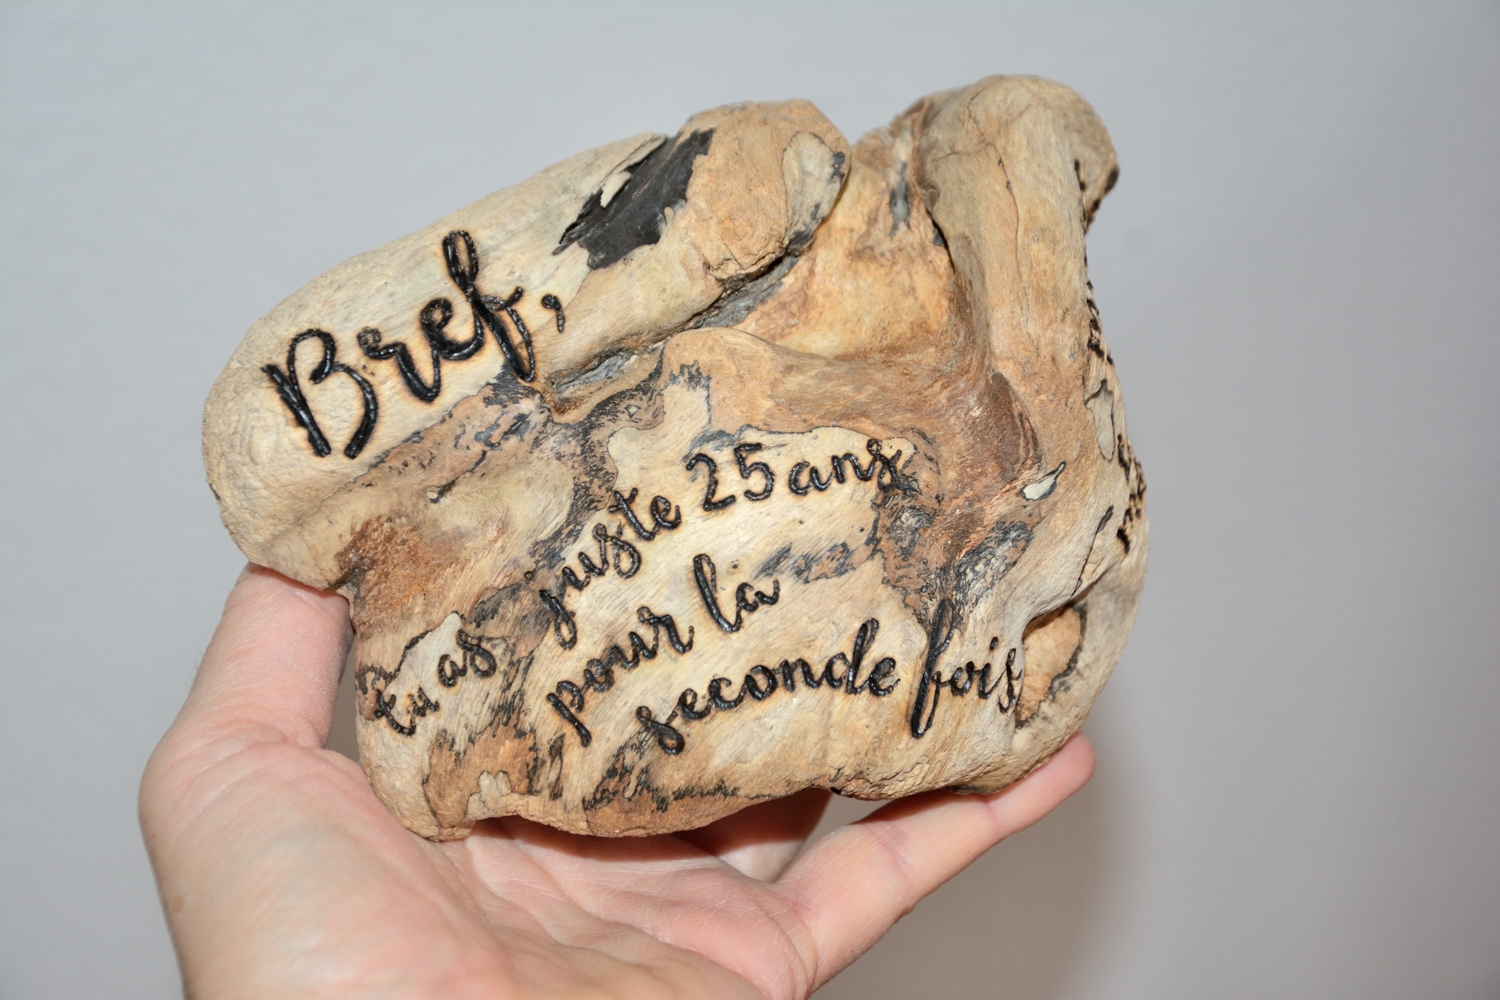 Bref,
tu as juste 25 ans
pour la
seconde fois